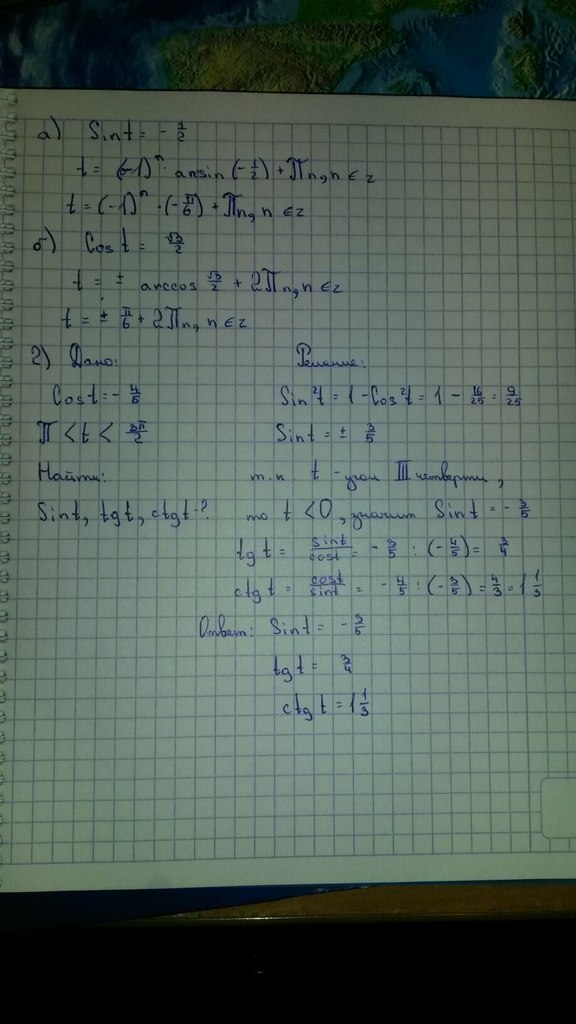 а) Sin t = - 1/2
t = (-1)^n · arcsin (-1/2) + Πn, n ∈ z
t = (-1)^n · (-π/6) + Πn, n ∈ z
б) Cos t = √3/2
t = ± arccos √3/2 + 2Πn, n ∈ z
t = ± π/6 + 2Πn, n ∈ z
2) Дано:
Cos t = - 4/5
Π < t < 3π/2
Найти:
Sin t, tg t, ctg t - ?
Решение:
Sin²t = 1 - Cos²t = 1 - 16/25 = 9/25
Sin t = ± 3/5
т.к. t - угол III четверти,
то t < 0, значит Sin t = - 3/5
tg t = sin t/cos t = - 3/5 : (- 4/5) = 3/4
ctg t = cos t/sin t = - 4/5 : (- 3/5) = 4/3 = 1 1/3
Ответ: Sin t = - 3/5
tg t = 3/4
ctg t = 1 1/3